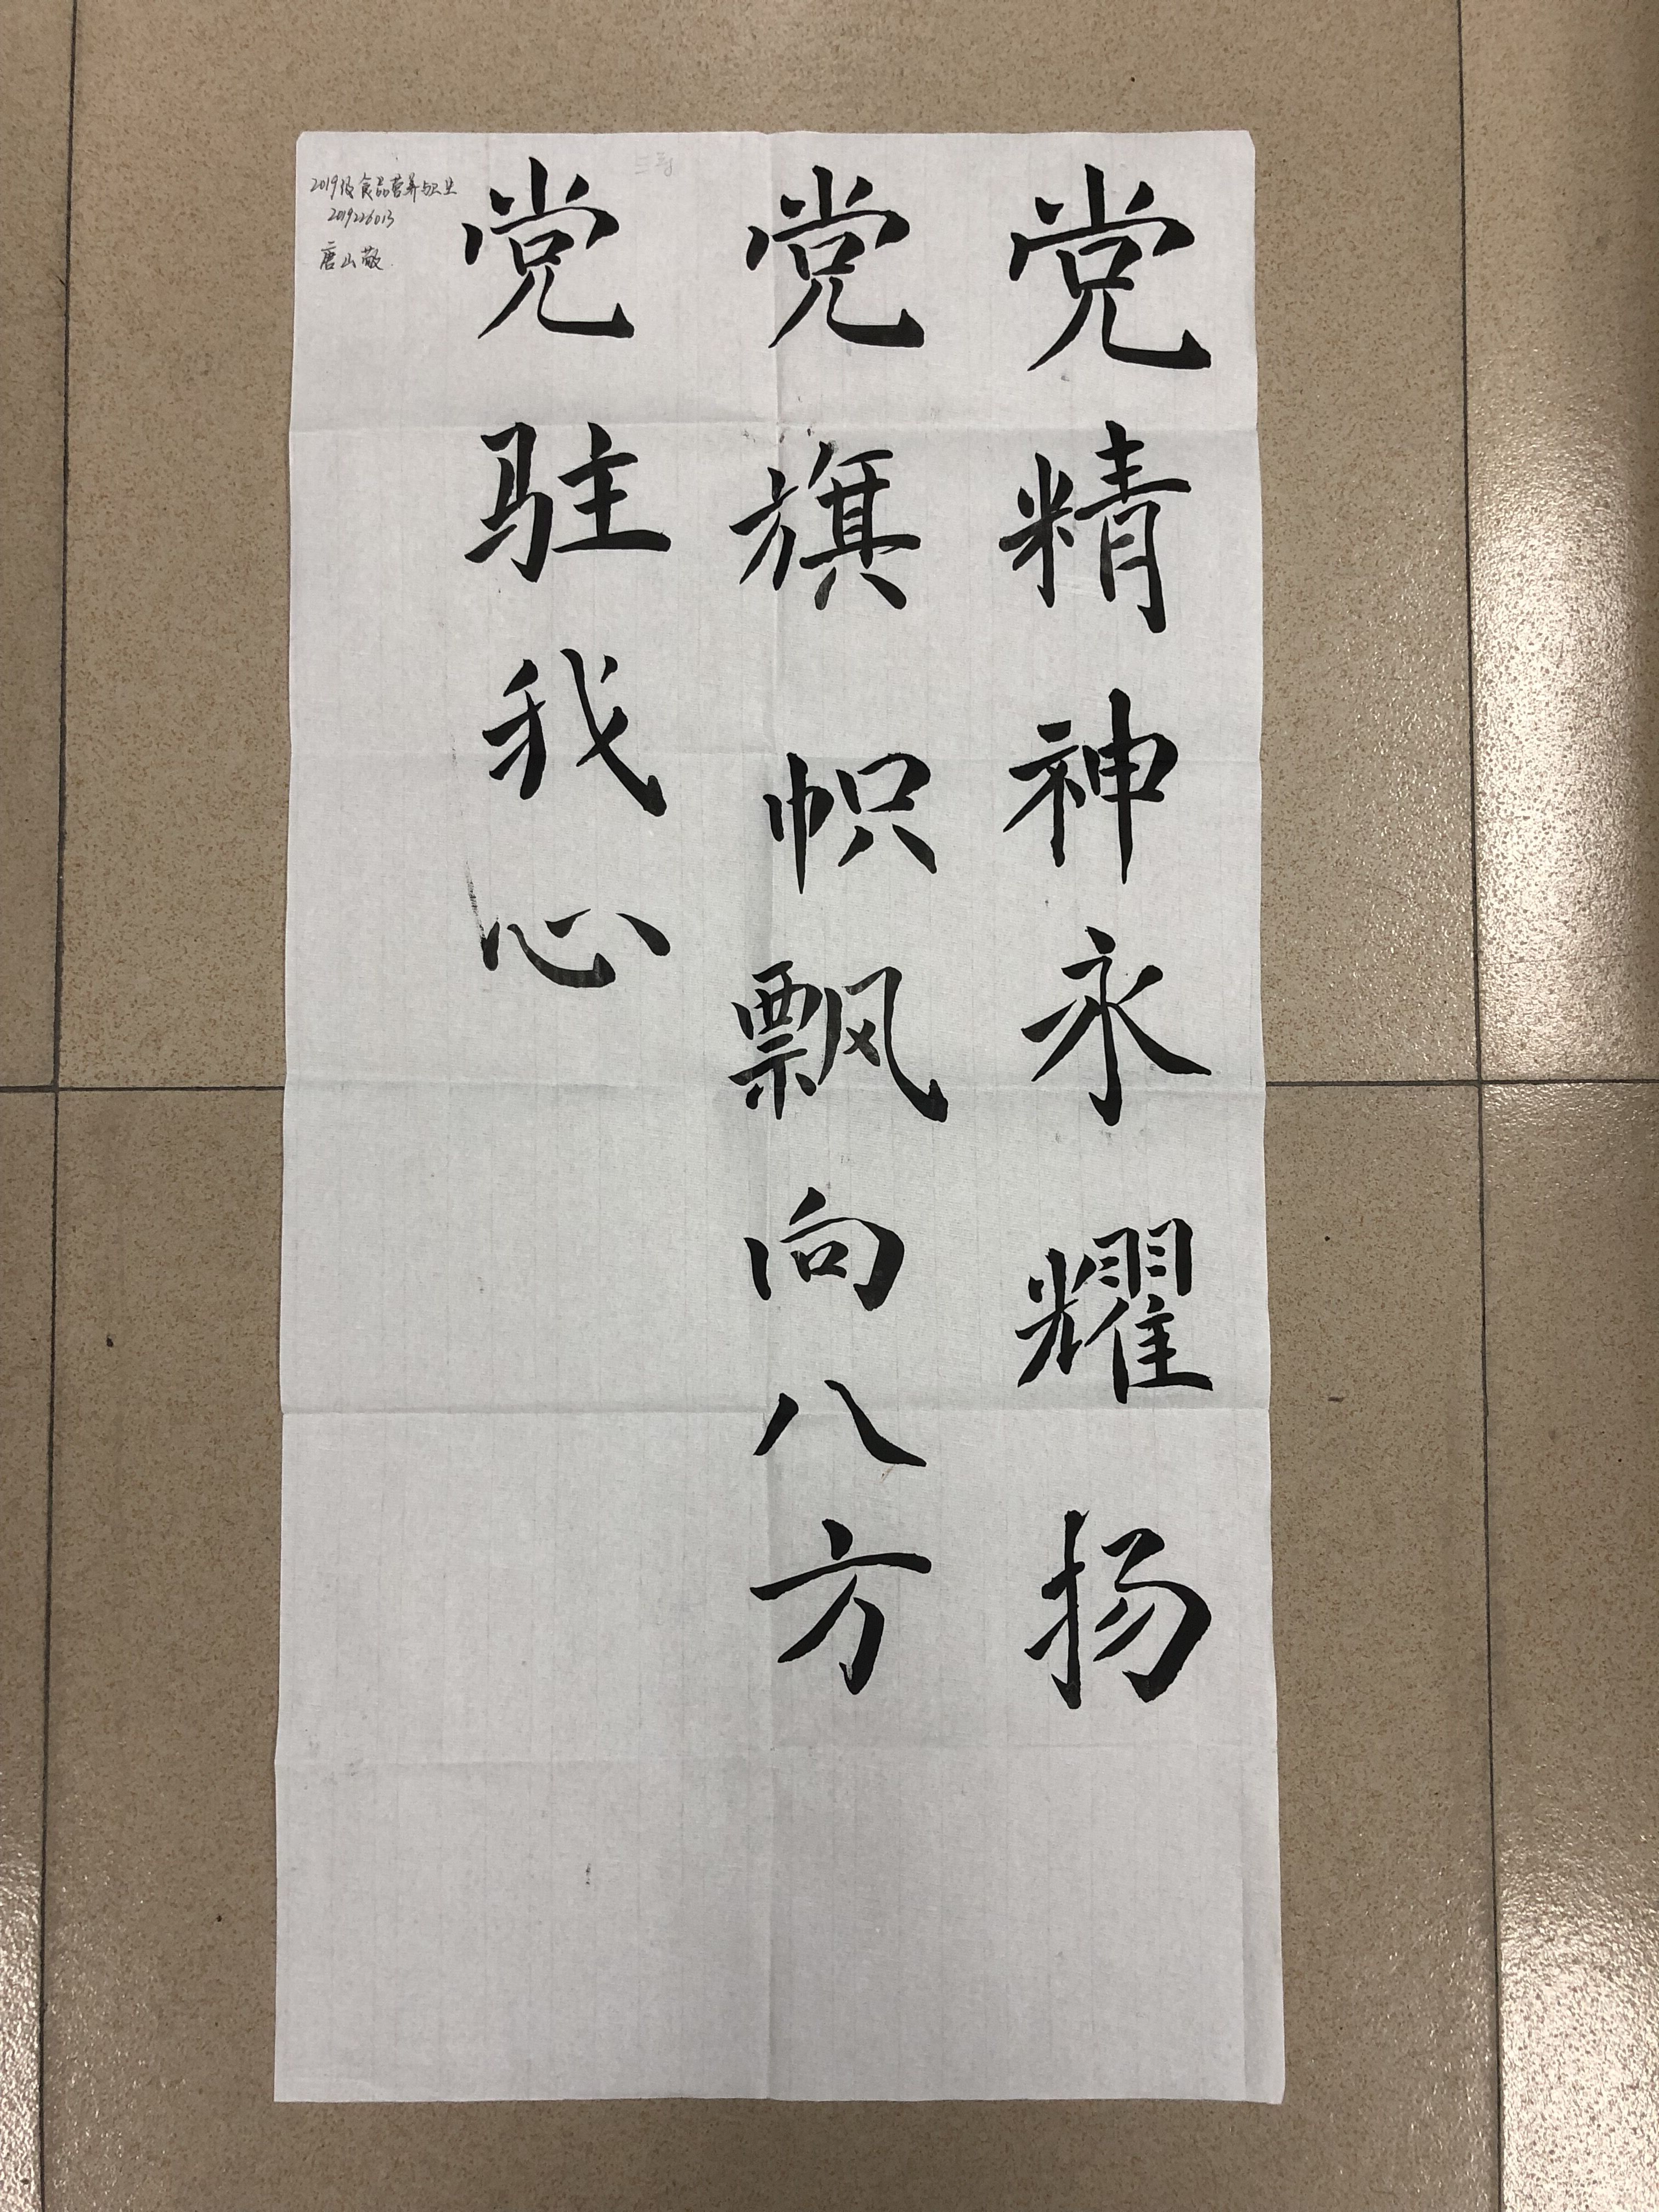 党精神永耀扬
党旗帜飘向八方
党驻我心
2019级食品营养与卫生
2019226013
唐山